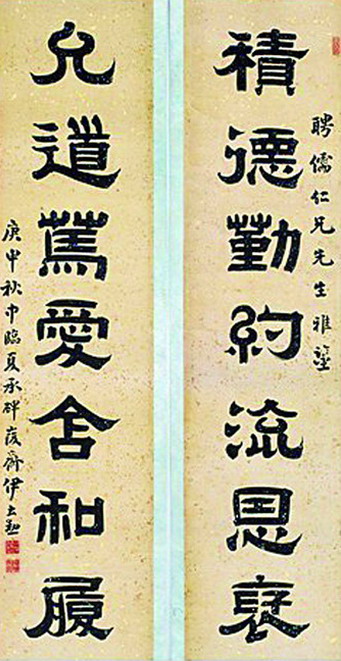 聘儒仁兄先生雅鑒
積德勤約流恩褒
允道篤愛含和履
庚申秋中臨夏承碑峻齋伊立勳